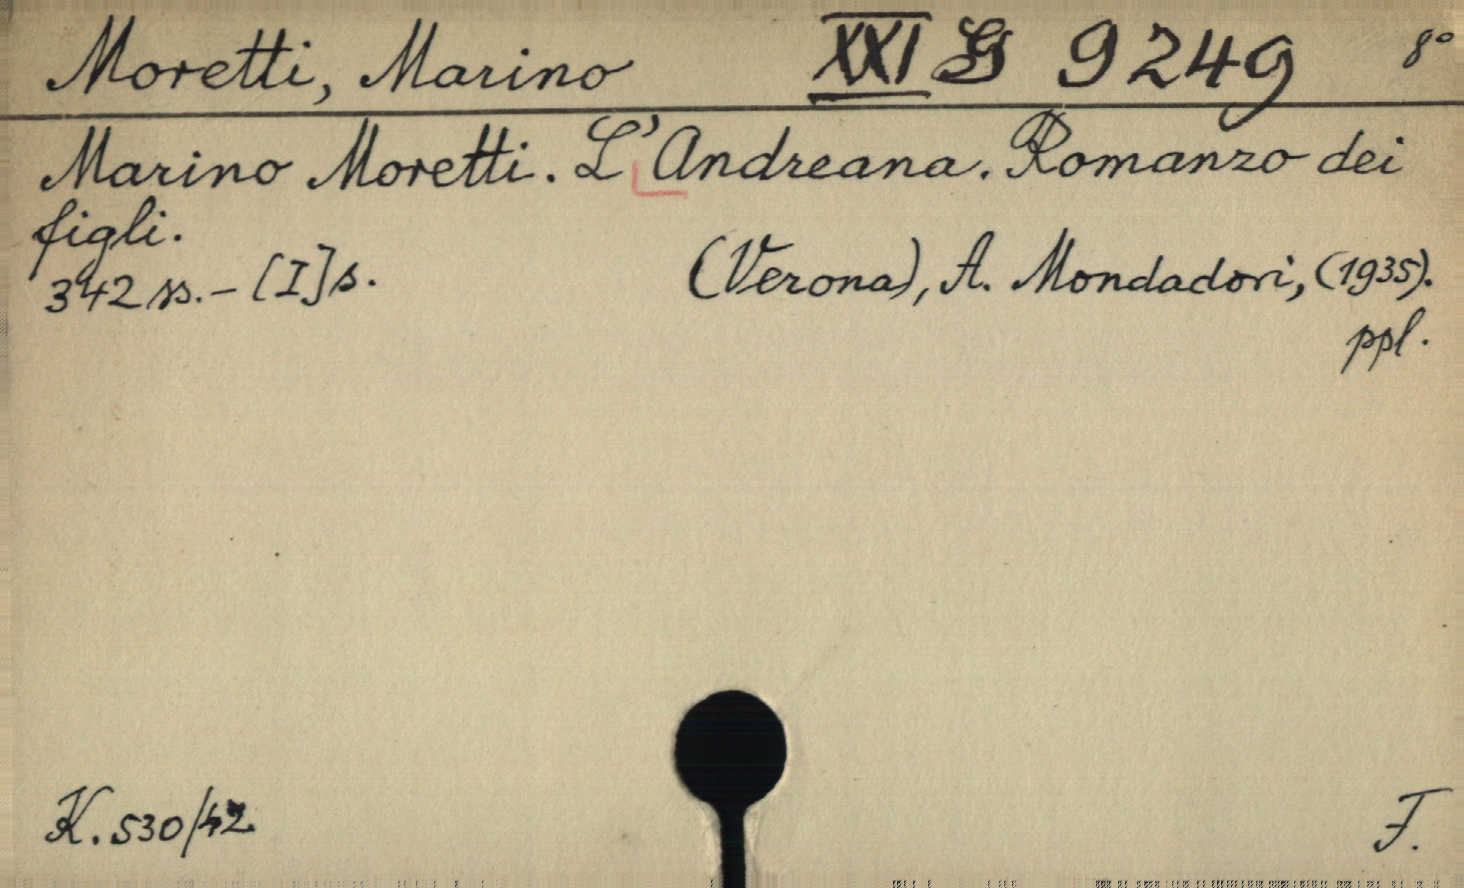 Moretti, Marino XXI G 9249 8°
Marino Moretti. L'Andreana. Romanzo dei
figli.
342 ss. - [I] s. (Verona), A. Mondadori, (1935).
ppl.
K. 530/42 F.